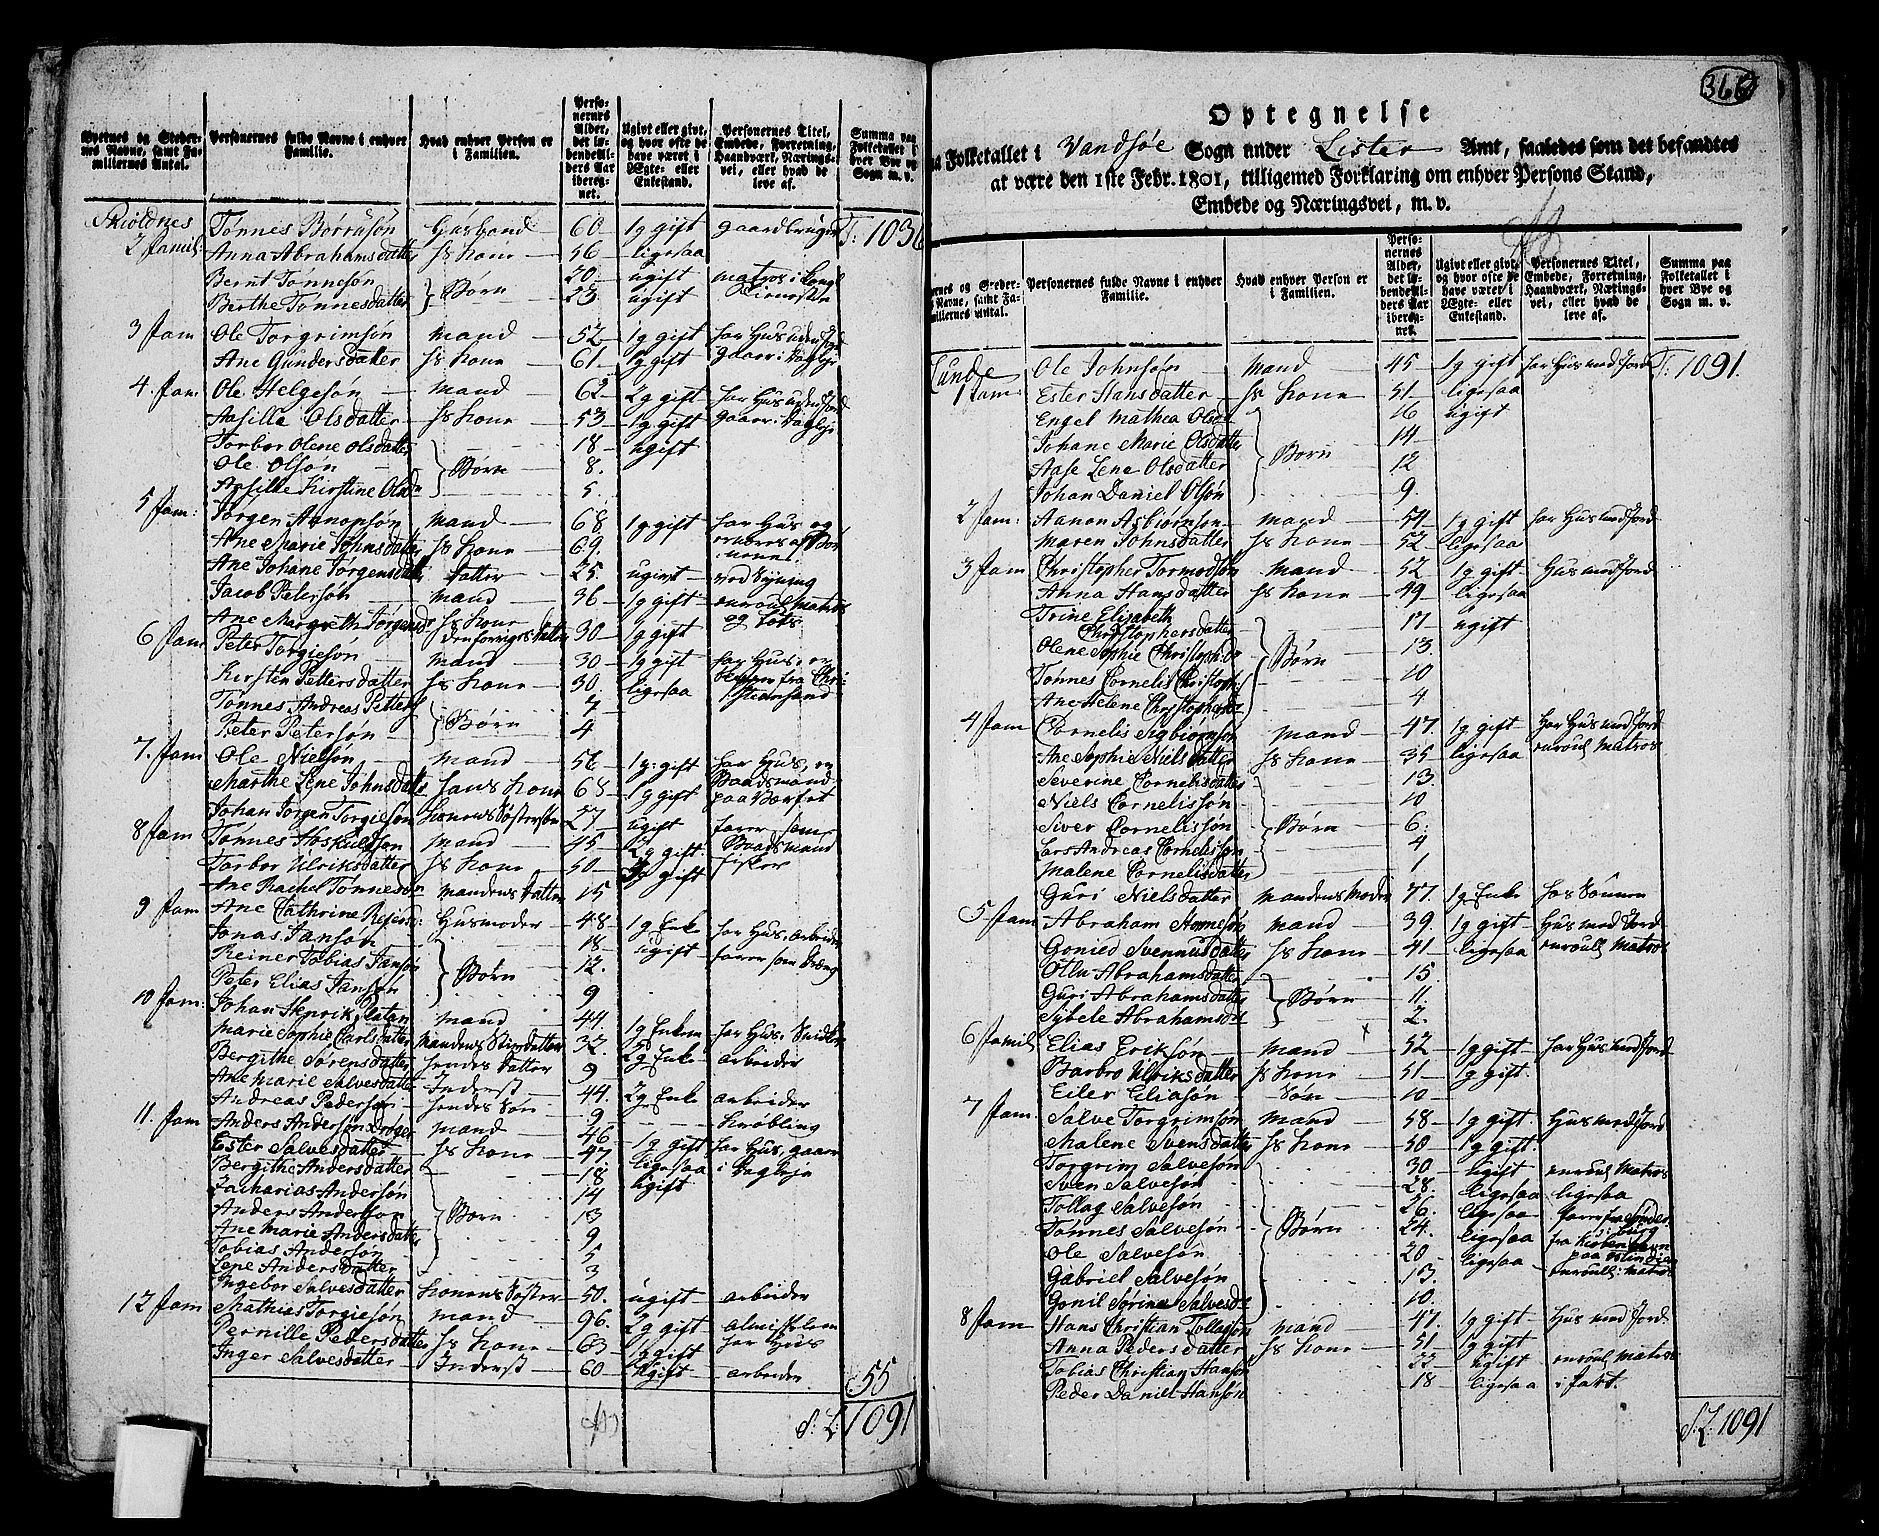 Byernes og Steder-
nes Navne, samt Fa-
milliernes Antal.
Personernes fulde Navne i enhver
Familie.
Hvad enhver Person er
i Familien.
Perso-
nernes
Alder,
det lø-
bende Al-
ders Aar
ibereg-
net.
Ugivt eller givt,
og hvor ofte de
have været i
Ægte- eller
Enkestand.
Personernes Titel,
Embede, Forretning,
Haandværk, Nærings-
vei, eller hvad de
leve af.
Summa paa
Folketallet i
hver Bye og
Sogn m. v.
Skioldnes Tønnes Børrusøn Huusbond 60 1g gift gaardbruger T: 1036
2 famil: Anna Abrahamsdatter hs kone 56 ligesaa
Bernt Tønnesøn 20 ugift matros i
Berthe Tønnesdatter Børn 23 ugift
3 fam Ole Torgrimsøn mand 52 1g gift har Hus uden Jord
Ane Gundersdatter hs kone 61 1g gift gaaer i Dagleje
4. fam Ole Helgesøn mand 62 2g gift har Hus uden Jord
Aasille Olsdatter hs kone 53 1g gift gaaer i Dagleje
Torbor Olene Olsdatter 18 ugift
Ole Olsøn Børn 8
Aasille Kirstine Olsd 5
5 fam: Jørgen Aanonsøn mand 68 1g gift har Hus og
Ane Marie Johnsdatter hs kone 69
Ane Johane Jørgensdatter datter 25 ugivt ved Syning
Jacob Petersøn mand 36 1g gift enroul Matros
Ane Margreth Jørgensd hs kone den forriges datter 30 1g gift og Lots
6 fam Peter Torgiesøn mand 30 1g gift har Hus, er
Kirstin Pettersdatter hs kone 30 ligesaa fra Chri-
stiansand
Tønnes Andreas Petters 7
Peter Petersøn Børn 4
7. fam Ole Nielsøn mand 52 1g: gift har Hus, er
Marthe Lene Johnsdatter hans kone 68 1g gift Baadsmand
Johan Jørgen Torgiesøn konens Søstersøn 27 ugift farer som
8 fam Tønnes Hoskuldsøn mand 45 2g gift Baadsmand
Torbor Ulriksdatter hs kone 50 gift fisker
Ane Rachel Tønnesd mandens datter 15
9 fam Ane Cathrine Husmoder 48 1g Enke har Hus, arbeider
Jonas Jansøn 18 ugift farer som
Reiner Tobias Jansøn Børn 12.
Peter Elias Jansøn 9
10 fam: Johan Henrik mand 44. 1g Enkem har Hus
Marie Sophie Carlsdatter mandens 32. 2g Enke arbeider
Bergithe Sørensdatter hendes datter 9
Ane Marie Salvesdatter Inderst 44. 2g Enke arbeider
Andreas Pedersøn hendes Søn 9 krøbling
11. fam Anders Andersøn mand 46 1g gift har Hus, gaaer
Ester Salvesdatter hs kone 47 ligesaa i Dagleje
Bergithe Andersdatter 18 ugift
Zacharias Andersøn 14
Anders Andersøn Børn 13
Ane Marie Andersdatter 9
Tobias Andersøn 5
Lene Andersdatter 3
Ingebor Salvesdatter konens Søster 50. ugift arbeider
12 fam Mathias Torgiesøn mand 96. 2g gift almisselem
Pernille Pedersdatter hs kone 63 1g gift har Hus
Inger Salvesdatter Inderst 60 ugift arbeider
55
S: L: 1091
366
Optegnelse
Folketallet i Vandsøe Sogn under Lister Amt, saaledes som det befandtes
at være den 1ste Febr. 1801, tilligemed Forklaring om enhver Persons Stand,
Embede og Næringsvei, m. v.
ernes og Steder-
Navne, samt Fa-
illiernes Antal.
Personernes fulde Navne i enhver
Familie.
Hvad enhver Person er
i Familien.
Perso-
nernes
Alder,
det lø-
bende Al-
ders Aar
ibereg-
net.
Ugivt eller givt,
og hvor ofte de
have været i
Ægte- eller
Enkestand.
Personernes Titel,
Embede, Forretning,
Haandværk, Nærings-
vei, eller hvad de
leve af.
Summa paa
Folketallet i
hver Bye og
Sogn m. v.
Lunde Ole Johnsøn mand 45 1g gift har Hus med Jord T: 1091.
1 fam Ester Hansdatter hs kone 51 ligesaa
Engel Mathea Olsd 16 ugift
Johane Marie Olsdatter 14
Aase Lene Olsdatter Børn 12
Johan Daniel Olsøn 9.
2 fam: Aanon Asbiørnsøn mand 54 1g gift har Hus med Jord
Maren Johnsdatter hs kone 52 ligesaa
3 fam Christopher Tormodsøn mand 52 1g gift Hus med Jord
Anna Hansdatter hs kone 49 ligesaa
Trine Elisabeth
Christophersdatter 17 ugift
Olene Sophie Christoph:d Børn 13
Tønnes Cornelis Christoph: 10
Ane Helene Christophersd 4
4 fam Cornelis Sigbiørnsøn mand 47. 1g gift har Hus med Jord
Ane Sophie Nielsdatter hs kone 35 ligesaa enroul Matros
Severine Cornelisdatter 13
Niels Cornelissøn 10
Siver Cornelissøn Børn 6.
Lars Andreas Cornelissøn 4
Malene Cornelisdatter 1
Guri Nielsdatter mandens Moder 77. 1g Enke hos Sønnen
5 fam Abraham mand 39. 1g gift Hus med Jord
Gonied Svennusdatter hs kone 41 ligesaa enroull Matros
Abrahamsdatter 15
Guri Abrahamsdatter Børn 11.
Sybele Abrahamsd 2.
6 famil Elias Eriksøn mand 52 1g gift har Hus med Jord
Barbro Ulriksdatter hs kone 51 g gift.
Eiler Eliasøn Søn 10
7 fam. Salve Torgrimsøn mand 58 1g gift Hus med Jord
Malene Svensdatter hs kone 50 1g gift.
Torgrim Salvesøn 30 ugift enroul Matros
Sven Salvesøn 28 ligesaa ligesaa
Tollag Salvesøn 26. ligesaa
Tønnes Salvesøn Børn 24. ligesaa fra Kiøbenhavn
Ole Salvesøn 20 ligesaa enroull: Matros
Gabriel Salvesøn 13.
Gonil Sørine Salvesd 10.
8 fam Hans Christian Tollagsøn mand 47. 1g gift Hus med Jord
Anna Pedersdatter hs kone 51 1g gift
Tobias Christian Hansøn 22 ugift enroul Matros
Peder Daniel Hansøn 18 ligesaa i fart.
S: L: 1091